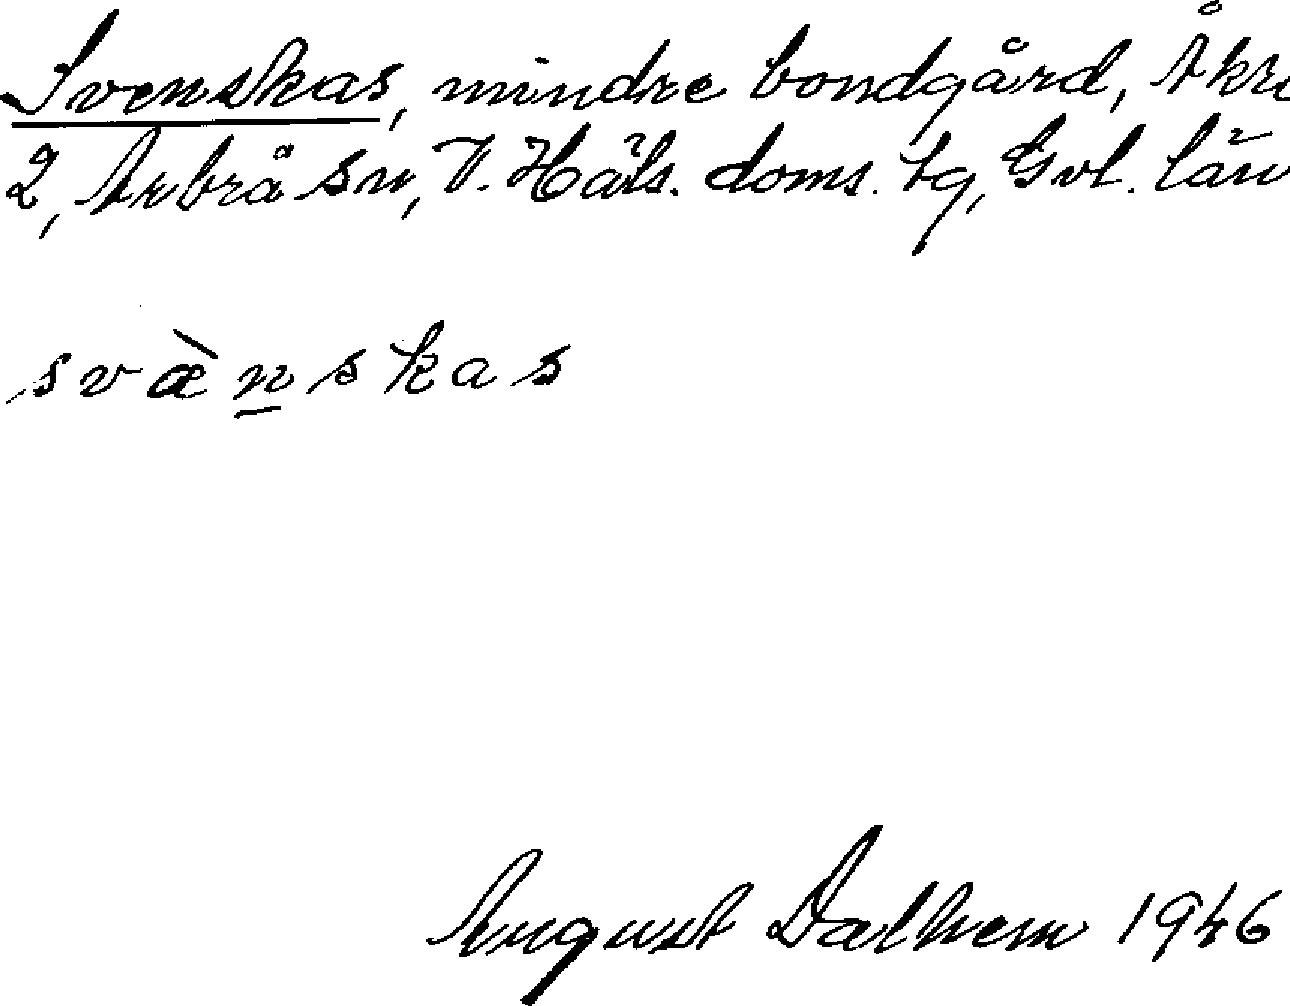 Svenskas, mindre bondgård, Åkre
2, Arbrå sn, V. Häls. doms. tg, Gvl. län
svæ̀n̲skas
August Dalhem 1946